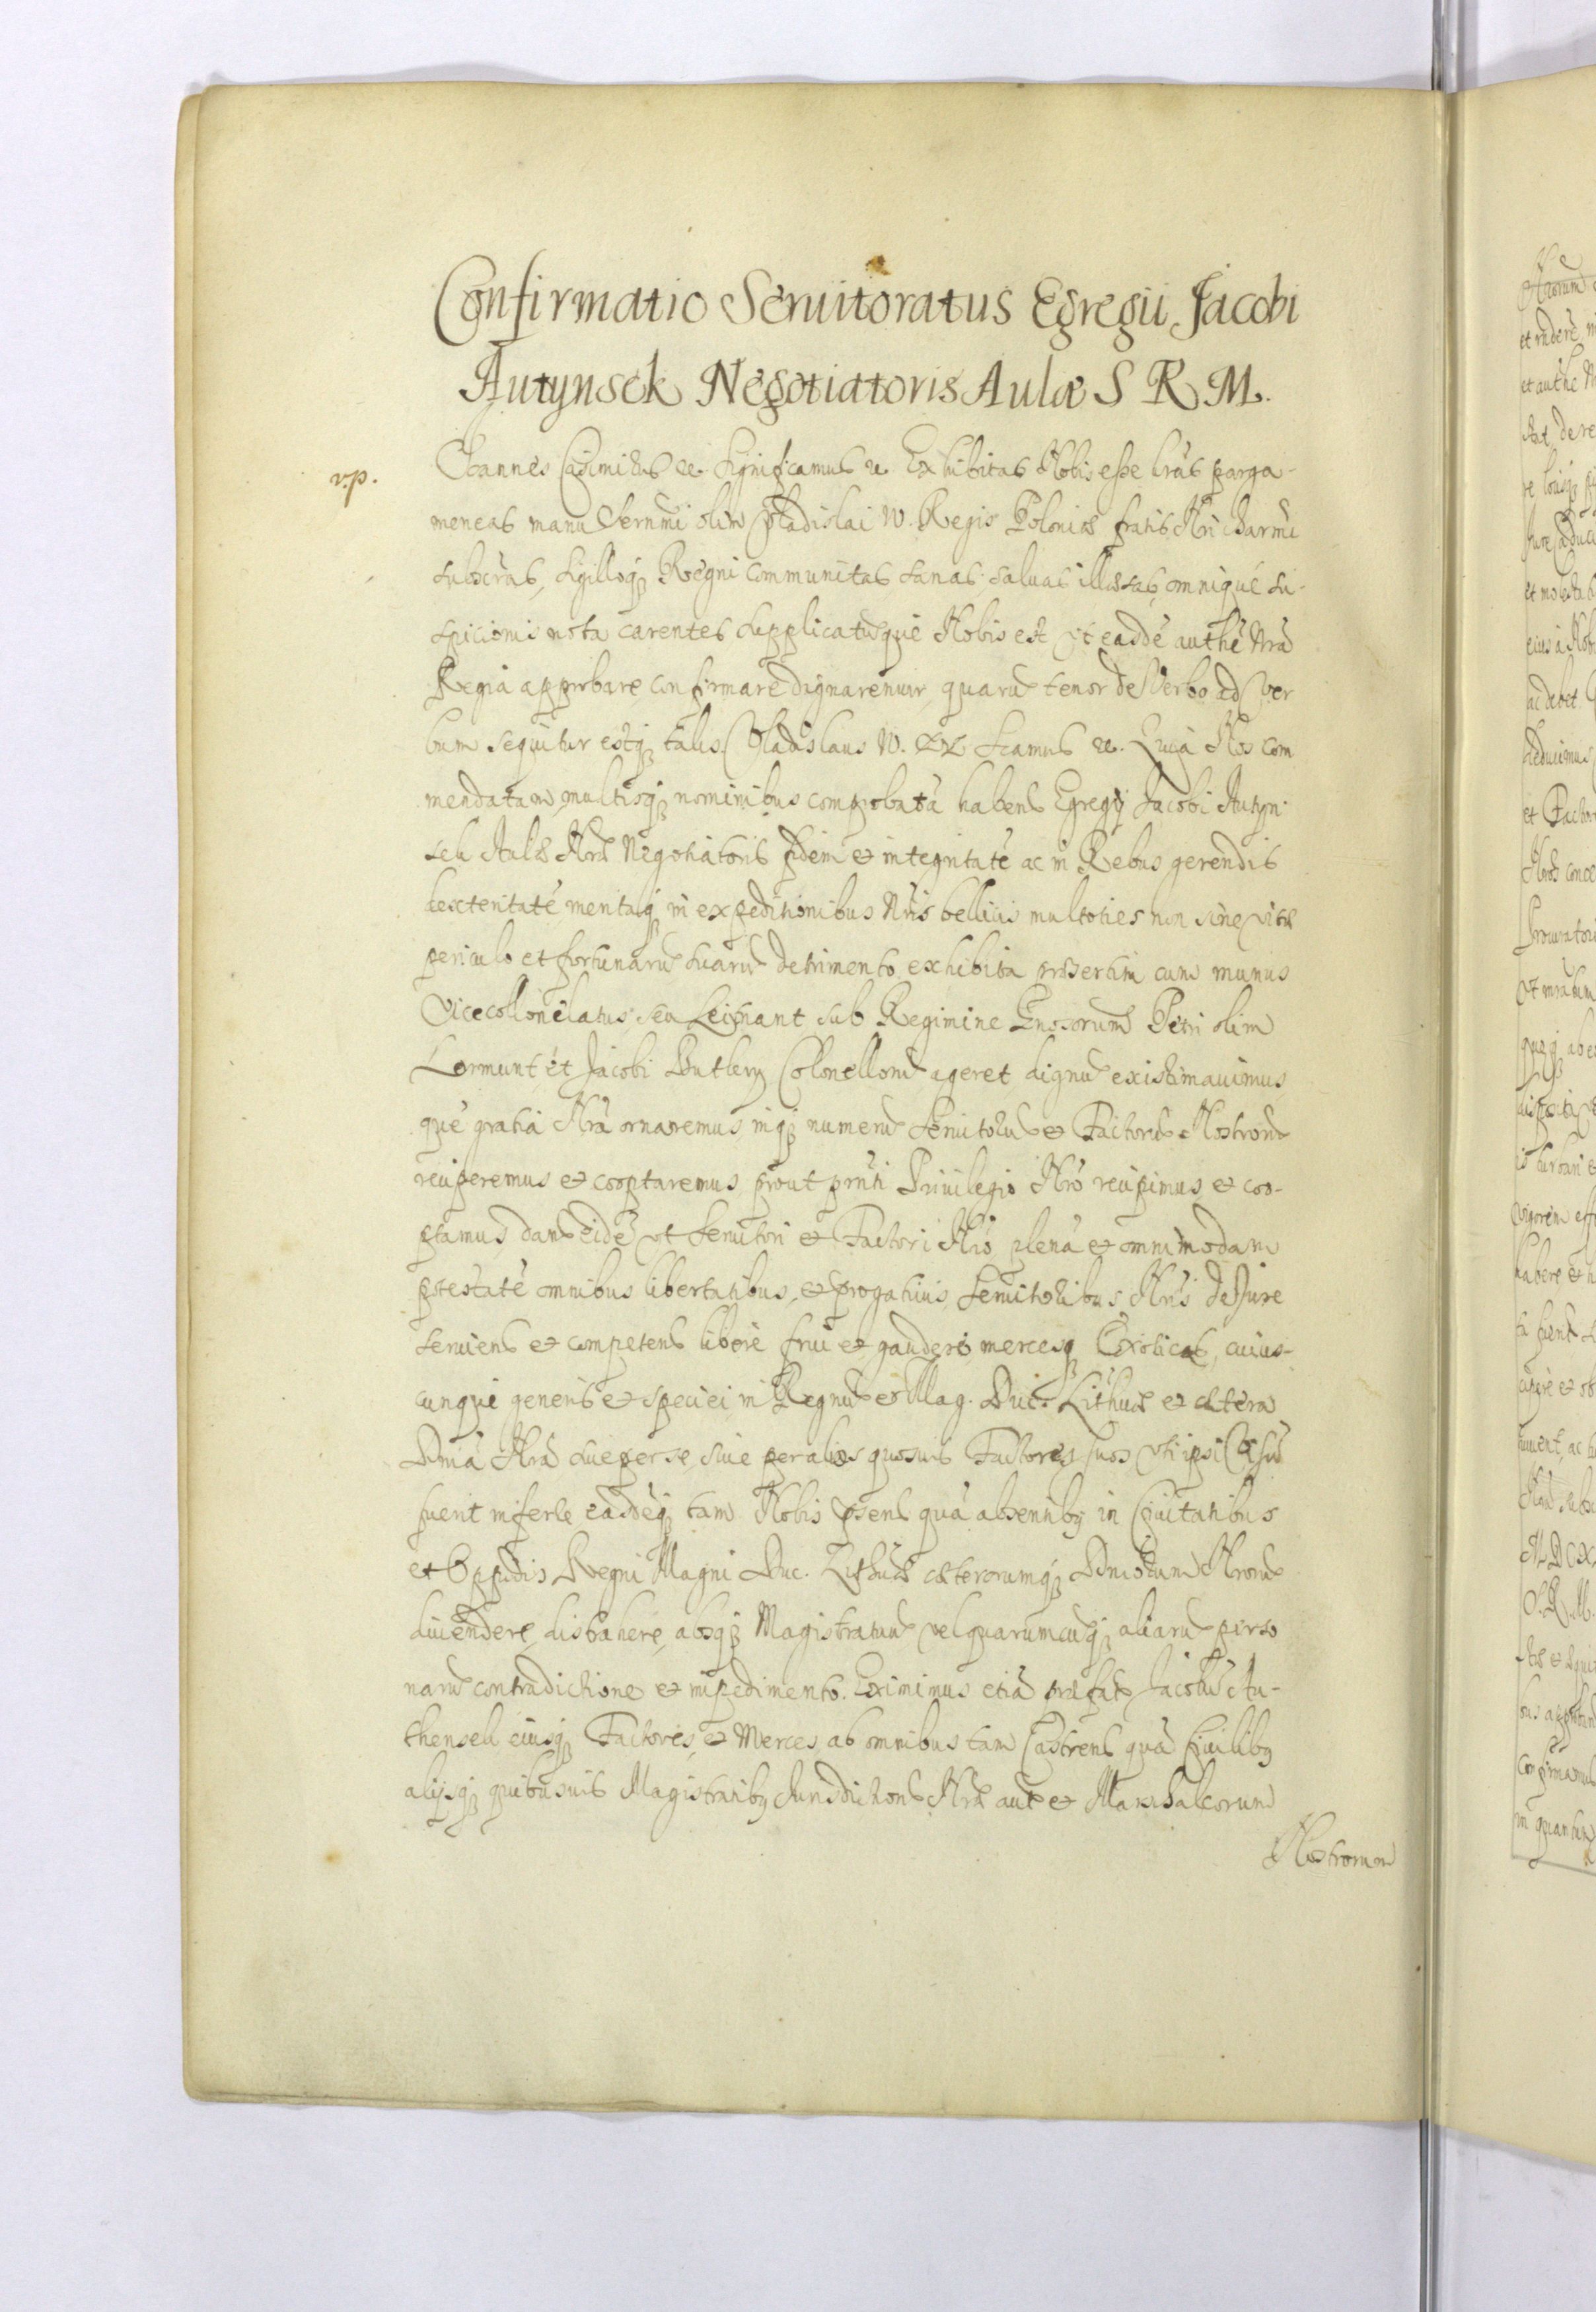 Confirmatio Seruitoratus Egregii Jacobi
Autynsek Negotiatoris Aulæ S R M.
v.p.
Joannes Casimirus &c. Significamus &c. Exhibitas Nobis esse lrás parga-
meneas manu Sernmi olim Vladislai IV. Regis Poloniæ fratris Nri charmi
subscras, sigilloq3 Regni communitas sanas saluas illæsas, omnique su-
spicionis nota carentes supplicatumque Nobis est vt easdē authē Nrā
Regiā approbare, confirmare dignaremur, quarū tenor de Verbo ad Ver
bum sequitur estq3 talis. Vladislaus IV. &c &c Scamus &c. Quia Nos com
mendatam, multisq3 nominibus comprobatā habens Egregij Jacobi Autyn-
sek Aulæ Nræ Negotiatoris fidem & integritatē ac in Rebus gerendis
dexteritatē meritaq3 in expeditionibus Nris bellicis multoties non sine vitæ
periculo et fortunarū suarū detrimento exhibita præsertim cum munus
Vicecollonelatus seu Leitnant sub Regimine Gnosorum Petri olim
Lermunt et Jacobi Butlery Colonellorū ageret, dignū existimauimus
quē gratiā Nrā ornaremus, inq3 numerū Seruitorū & Factorū Nostrorū
reciperemus & cooptaremus prout pnti Priuilegio Nro recipimus & coo-
ptamus dantes eidē vt Seruitori & Factori Nro plenā & omnimodam
potestatē omnibus libertatibus, & progatiuis Seruitoribus Nris de Jure
seruiens & competens libere frui & gaudere, mercesq3 Exoticas, cuius-
cunque generis & speciei in Regnū & Mag. Duc. Lithuæ & cætera
Dnia Nra siue per se, siue per alios quosuis Factores suos vti ipsi Visū
fuerit inferre easdēq3 tam Nobis psens quā absentib3 in Ciuitatibus
et Oppidis Regni Magni Duc. Lithuæ cæterorumq3 Dniorum Nrorū
diuendere, distrahere, absq3 Magistratuū vel quarumcūq3 aliarū perso
narū contradictione & impedimento. Eximimus etiā præfatū Jacobū Au-
thensek eiusq3 Factores, & Merces ab omnibus tam Castrens quā Ciuilib3
alijsq3 quibusuis Magistratib3 Jurisdictions Nræ autē & Marschalcorum
Nostrorum